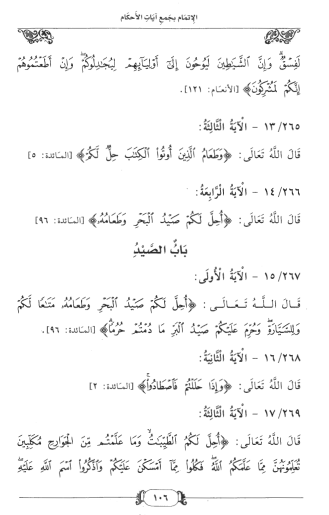 الإتمام بجمع آيات الأحكام
لَفِسْقٌ وَإِنَّ الشَّيَاطِينَ لَيُوحُونَ إِلَىٰ أَوْلِيَائِهِمْ لِيُجَادِلُوكُمْ وَإِنْ أَطَعْتُمُوهُمْ
إِنَّكُمْ لَمُشْرِكُونَ﴾ [الأنعام: ١٢١].
١٣/٢٦٥ - الْآيَةُ الثَّالِثَةُ:
قَالَ اللَّهُ تَعَالَى: ﴿وَطَعَامُ الَّذِينَ أُوتُوا الْكِتَابَ حِلٌّ لَكُمْ﴾ [المائدة: ٥]
١٤/٢٦٦ - الْآيَةُ الرَّابِعَةُ:
قَالَ اللَّهُ تَعَالَى: ﴿أُحِلَّ لَكُمْ صَيْدُ الْبَحْرِ وَطَعَامُهُ﴾ [المائدة: ٩٦]
بَابُ الصَّيْدِ
١٥/٢٦٧ - الْآيَةُ الْأُولَى:
قَالَ اللَّهُ تَعَالَى: ﴿أُحِلَّ لَكُمْ صَيْدُ الْبَحْرِ وَطَعَامُهُ مَتَاعًا لَكُمْ
وَلِلسَّيَّارَةِ وَحُرِّمَ عَلَيْكُمْ صَيْدُ الْبَرِّ مَا دُمْتُمْ حُرُمًا﴾ [المائدة: ٩٦].
١٦/٢٦٨ - الْآيَةُ الثَّانِيَةُ:
قَالَ اللَّهُ تَعَالَى: ﴿وَإِذَا حَلَلْتُمْ فَاصْطَادُوا﴾ [المائدة: ٢]
١٧/٢٦٩ - الْآيَةُ الثَّالِثَةُ:
قَالَ اللَّهُ تَعَالَى: ﴿أُحِلَّ لَكُمُ الطَّيِّبَاتُ وَمَا عَلَّمْتُمْ مِنَ الْجَوَارِحِ مُكَلِّبِينَ
تُعَلِّمُونَهُنَّ مِمَّا عَلَّمَكُمُ اللَّهُ فَكُلُوا مِمَّا أَمْسَكْنَ عَلَيْكُمْ وَاذْكُرُوا اسْمَ اللَّهِ عَلَيْهِ
١٠٦